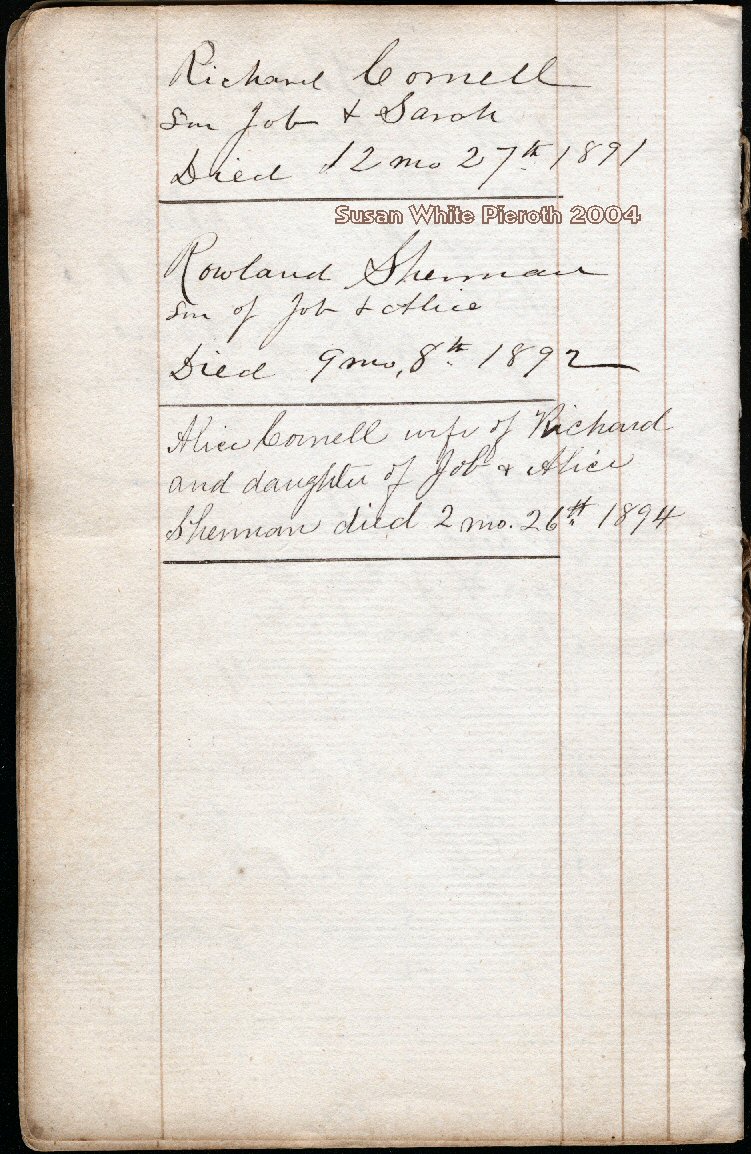 Richard Cornell
son Job & Sarah
Died 12 mo 27th 1891
Susan White Pieroth 2004
Rowland Sherman
son of Job & Alice
Died 9 mo, 8th 1892
Alice Cornell wife of Richard
and daughter of Job & Alice
Sherman died 2 mo. 26th 1894